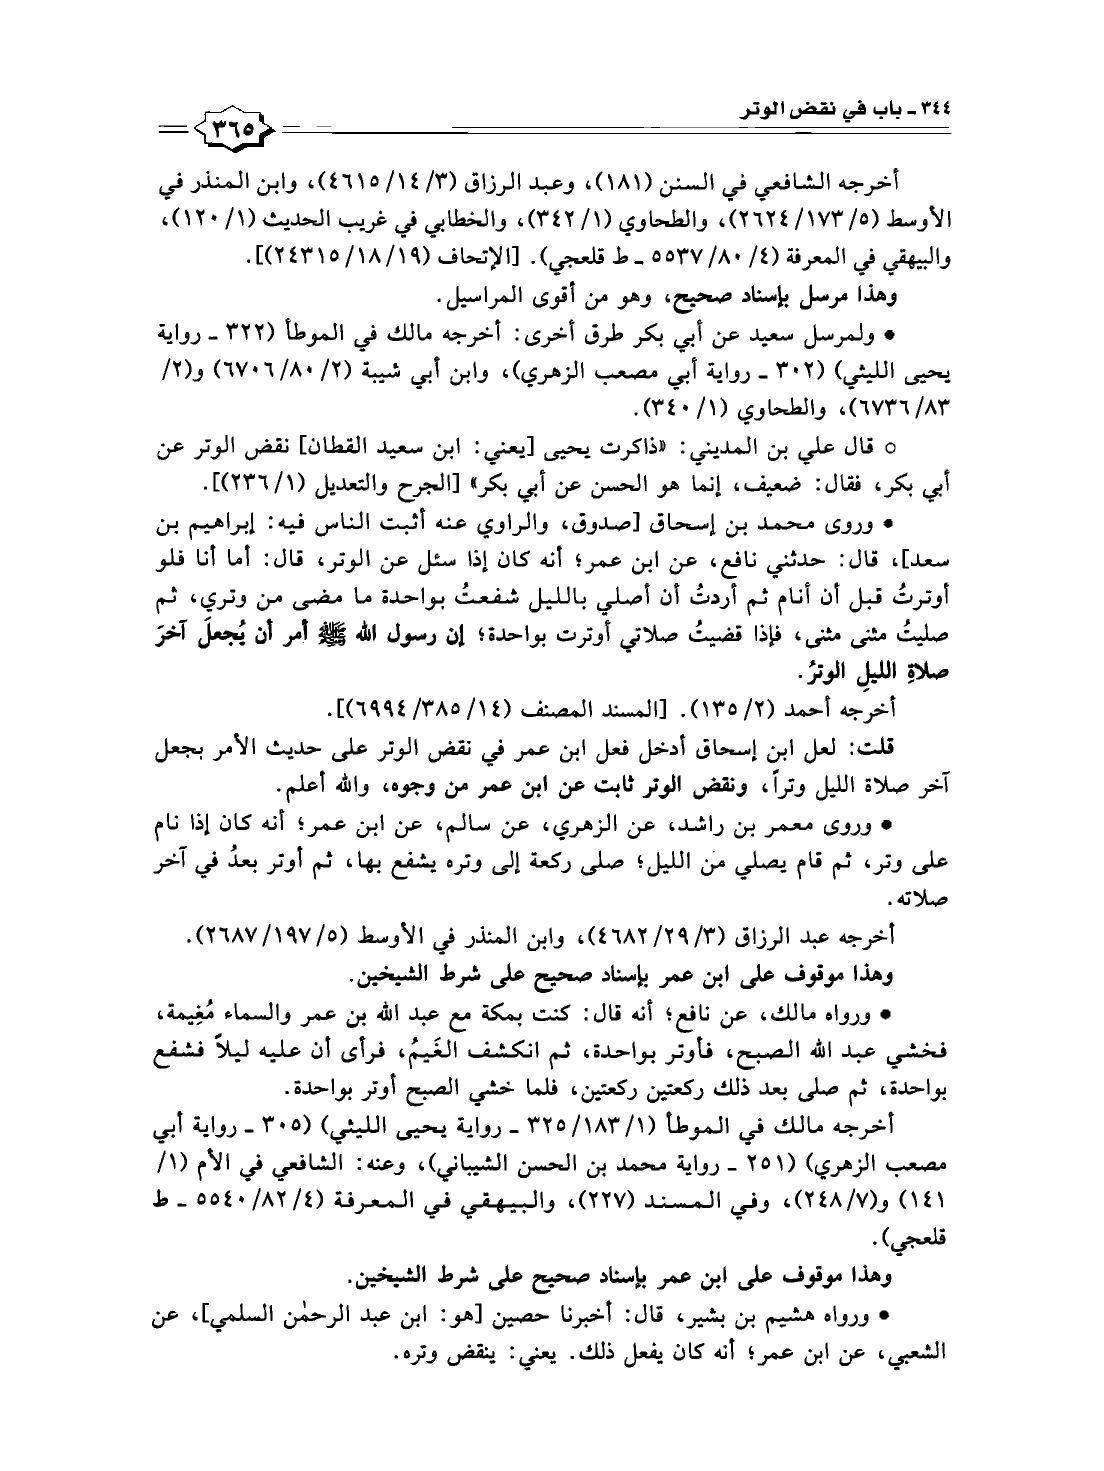 ٣٤٤ ـ باب في نقض الوتر
٣٦٥
أخرجه الشافعي في السنن (١٨١)، وعبد الرزاق (٣/ ١٤/ ٤٦١٥)، وابن المنذر في
الأوسط (٥/ ١٧٣/ ٢٦٢٤)، والطحاوي (١/ ٣٤٢)، والخطابي في غريب الحديث (١/ ١٢٠)،
والبيهقي في المعرفة (٤/ ٨٠/ ٥٥٣٧ ـ ط قلعجي). [الإتحاف (١٩/ ١٨/ ٢٤٣١٥)].
وهذا مرسل بإسناد صحيح، وهو من أقوى المراسيل.
• ولمرسل سعيد عن أبي بكر طرق أخرى: أخرجه مالك في الموطأ (٣٢٢ ـ رواية
يحيى الليثي) (٣٠٢ ـ رواية أبي مصعب الزهري)، وابن أبي شيبة (٢/ ٨٠/ ٦٧٠٦) و(٢/
٨٣/ ٦٧٣٦)، والطحاوي (١/ ٣٤٠).
○ قال علي بن المديني: «ذاكرت يحيى [يعني: ابن سعيد القطان] نقض الوتر عن
أبي بكر، فقال: ضعيف، إنما هو الحسن عن أبي بكر» [الجرح والتعديل (١/ ٢٣٦)].
• وروى محمد بن إسحاق [صدوق، والراوي عنه أثبت الناس فيه: إبراهيم بن
سعد]، قال: حدثني نافع، عن ابن عمر؛ أنه كان إذا سئل عن الوتر، قال: أما أنا فلو
أوترتُ قبل أن أنام ثم أردتُ أن أصلي بالليل شفعتُ بواحدة ما مضى من وتري، ثم
صليتُ مثنى مثنى، فإذا قضيتُ صلاتي أوترت بواحدة؛ إن رسول الله ﷺ أمر أن يُجعلَ آخرَ
صلاةِ الليلِ الوترُ.
أخرجه أحمد (٢/ ١٣٥). [المسند المصنف (١٤/ ٣٨٥/ ٦٩٩٤)].
قلت: لعل ابن إسحاق أدخل فعل ابن عمر في نقض الوتر على حديث الأمر بجعل
آخر صلاة الليل وتراً، ونقض الوتر ثابت عن ابن عمر من وجوه، والله أعلم.
• وروى معمر بن راشد، عن الزهري، عن سالم، عن ابن عمر؛ أنه كان إذا نام
على وتر، ثم قام يصلي من الليل؛ صلى ركعة إلى وتره يشفع بها، ثم أوتر بعدُ في آخر
صلاته.
أخرجه عبد الرزاق (٣/ ٢٩/ ٤٦٨٢)، وابن المنذر في الأوسط (٥/ ١٩٧/ ٢٦٨٧).
وهذا موقوف على ابن عمر بإسناد صحيح على شرط الشيخين.
• ورواه مالك، عن نافع؛ أنه قال: كنت بمكة مع عبد الله بن عمر والسماء مُغِيمة،
فخشي عبد الله الصبح، فأوتر بواحدة، ثم انكشف الغَيمُ، فرأى أن عليه ليلاً فشفع
بواحدة، ثم صلى بعد ذلك ركعتين ركعتين، فلما خشي الصبح أوتر بواحدة.
أخرجه مالك في الموطأ (١/ ١٨٣/ ٣٢٥ ـ رواية يحيى الليثي) (٣٠٥ ـ رواية أبي
مصعب الزهري) (٢٥١ ـ رواية محمد بن الحسن الشيباني)، وعنه: الشافعي في الأم (١/
١٤١) و(٧/ ٢٤٨)، وفي المسند (٢٢٧)، والبيهقي في المعرفة (٤/ ٨٢/ ٥٥٤٠ ـ ط
قلعجي).
وهذا موقوف على ابن عمر بإسناد صحيح على شرط الشيخين.
• ورواه هشيم بن بشير، قال: أخبرنا حصين [هو: ابن عبد الرحمٰن السلمي]، عن
الشعبي، عن ابن عمر؛ أنه كان يفعل ذلك. يعني: ينقض وتره.